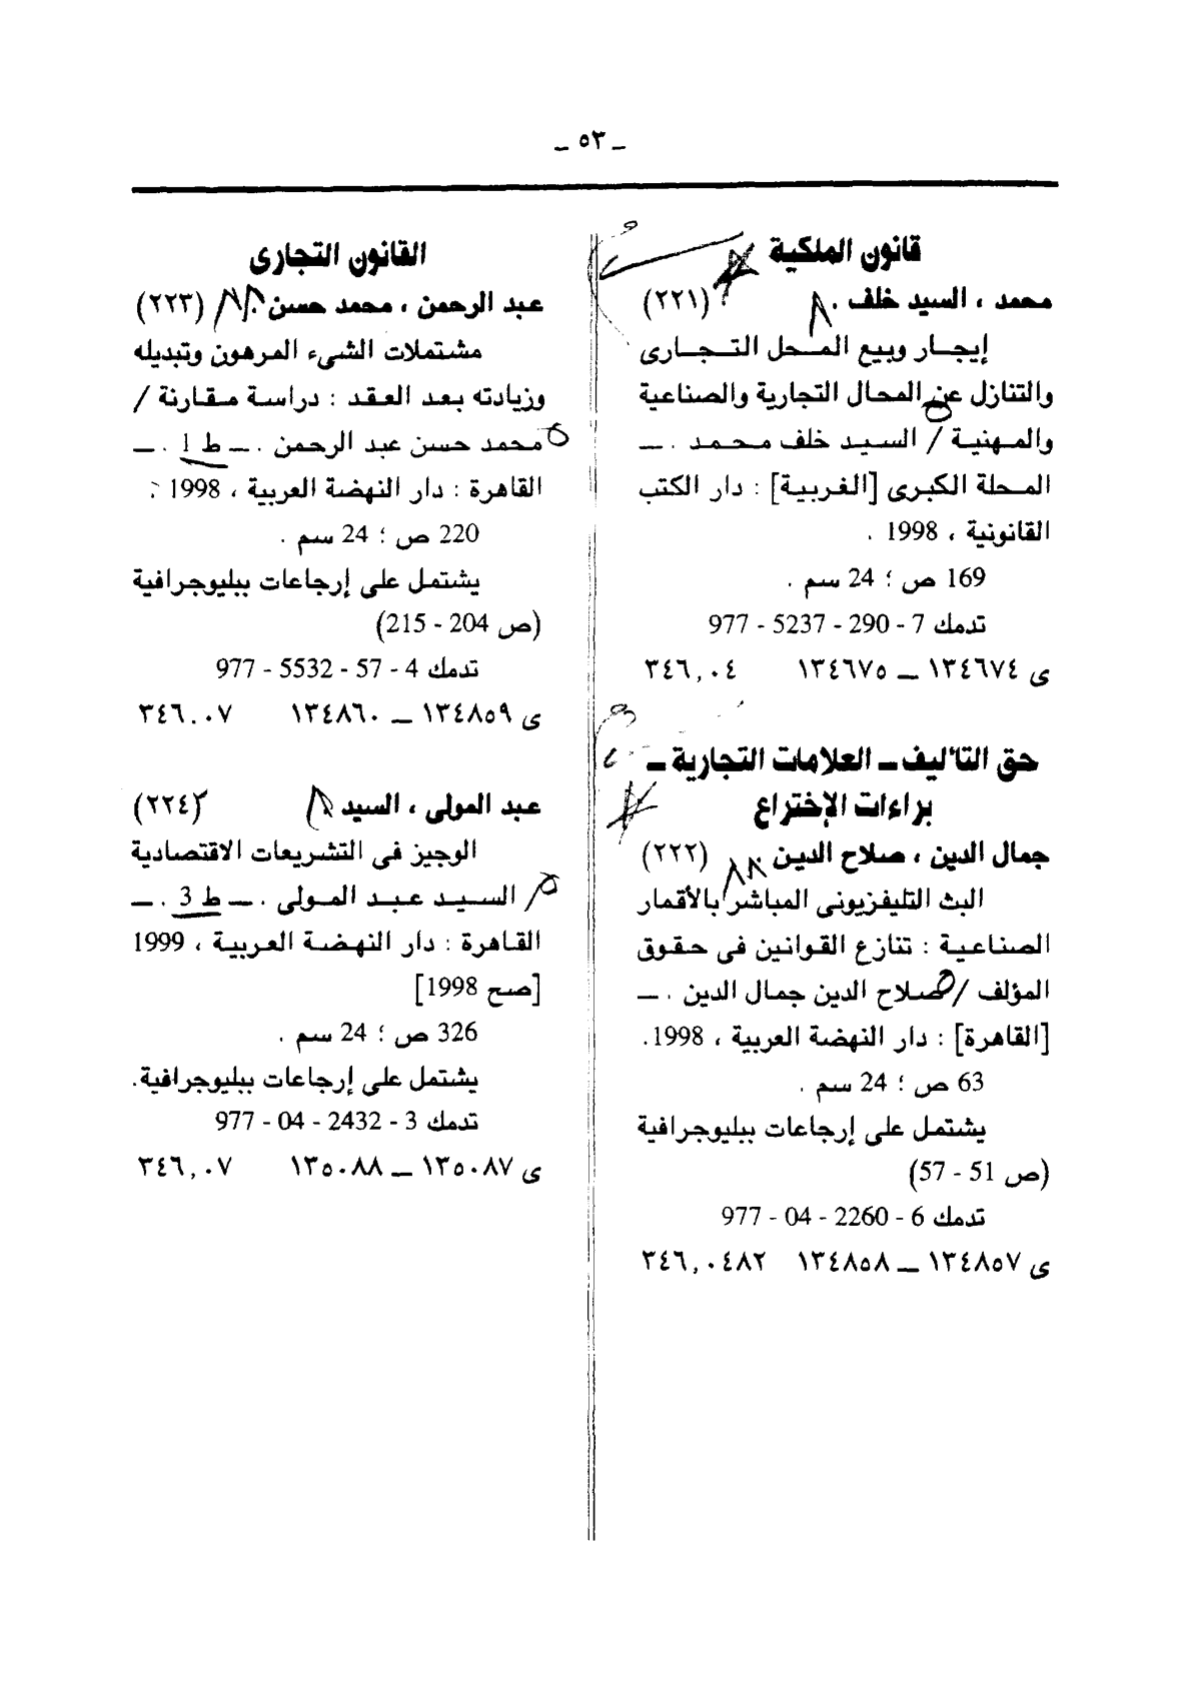 ـ ٥٣ ـ
قانون الملكية
محمد ، السيد خلف . (٢٢١)
إيجار وبيع المحل التجارى
والتنازل عن المحال التجارية والصناعية
والمهنية / السيد خلف محمد . ـ
المحلة الكبرى [الغربية] : دار الكتب
القانونية ، 1998 .
169 ص ؛ 24 سم .
تدمك 7 - 290 - 5237 - 977
ى ١٣٤٦٧٤ ـ ١٣٤٦٧٥ ٣٤٦,٠٤
حق التأليف ـ العلامات التجارية ـ
براءات الإختراع
جمال الدين ، صلاح الدين (٢٢٢)
البث التليفزيونى المباشر بالأقمار
الصناعية : تنازع القوانين فى حقوق
المؤلف / صلاح الدين جمال الدين . ـ
[القاهرة] : دار النهضة العربية ، 1998.
63 ص ؛ 24 سم .
يشتمل على إرجاعات ببليوجرافية
(ص 51 - 57)
تدمك 6 - 2260 - 04 - 977
ى ١٣٤٨٥٧ ـ ١٣٤٨٥٨ ٣٤٦,٠٤٨٢
القانون التجارى
عبد الرحمن ، محمد حسن . (٢٢٣)
مشتملات الشىء المرهون وتبديله
وزيادته بعد العقد : دراسة مقارنة /
محمد حسن عبد الرحمن . ـ ط 1 . ـ
القاهرة : دار النهضة العربية ، 1998 .
220 ص ؛ 24 سم .
يشتمل على إرجاعات ببليوجرافية
(ص 204 - 215)
تدمك 4 - 57 - 5532 - 977
ى ١٣٤٨٥٩ ـ ١٣٤٨٦٠ ٣٤٦.٠٧
عبد المولى ، السيد (٢٢٤)
الوجيز فى التشريعات الاقتصادية
/ السيد عبد المولى . ـ ط 3 . ـ
القاهرة : دار النهضة العربية ، 1999
[صح 1998]
326 ص ؛ 24 سم .
يشتمل على إرجاعات ببليوجرافية.
تدمك 3 - 2432 - 04 - 977
ى ١٣٥٠٨٧ ـ ١٣٥٠٨٨ ٣٤٦,٠٧